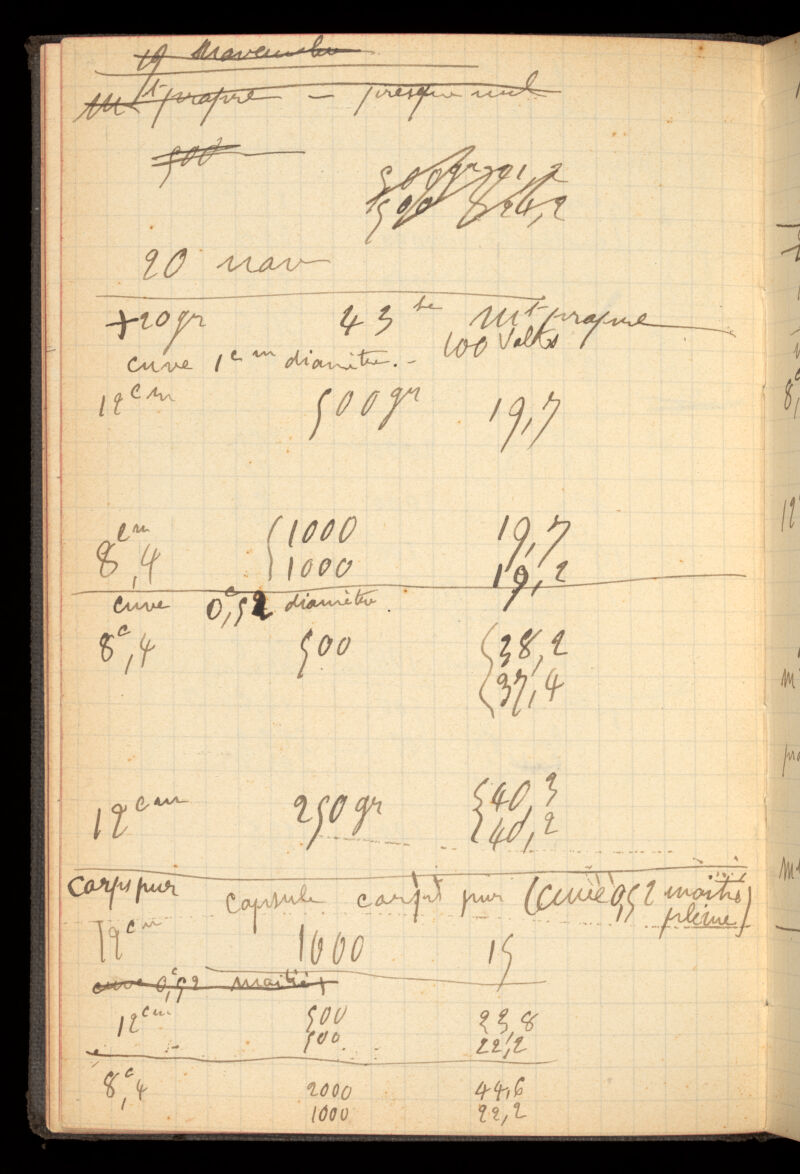 19 Novembre
Mt propre – presque nul
500
500 gr 21,2
500 24,2
20 nov
+20gr 43 te Mt propre
cuve 1cm diamètre. – 100 Volts
12cm 500gr 19,7
1000 19,7
8cm,4 1000 19,2
cuve 0c,52 diamètre.
8c,4 500 38,2
37,4
12cm 250gr 40,3
40,2
Corps pur capsule corps pur (cuve 0,52 moitié
pleine)
12cm 1000 15
cuve 0c,52 moitié
12cm 500 23,8
500 22,2
8c,4 2000 44,6
1000 22,2